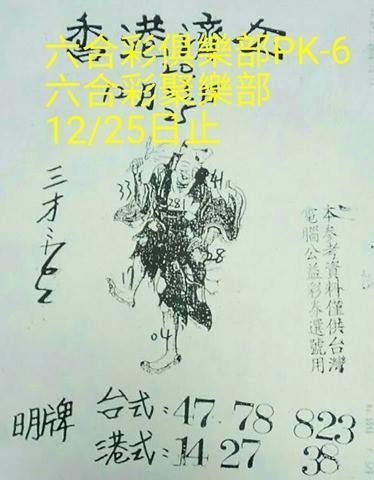 香港濟公
六合彩俱樂部PK-6
六合彩聚樂部
12/25日止
25
33
41
28
28
04
本參考資料僅供台灣
電腦公益彩券選號用
明牌
台式:47 78 823
港式:14 27 38